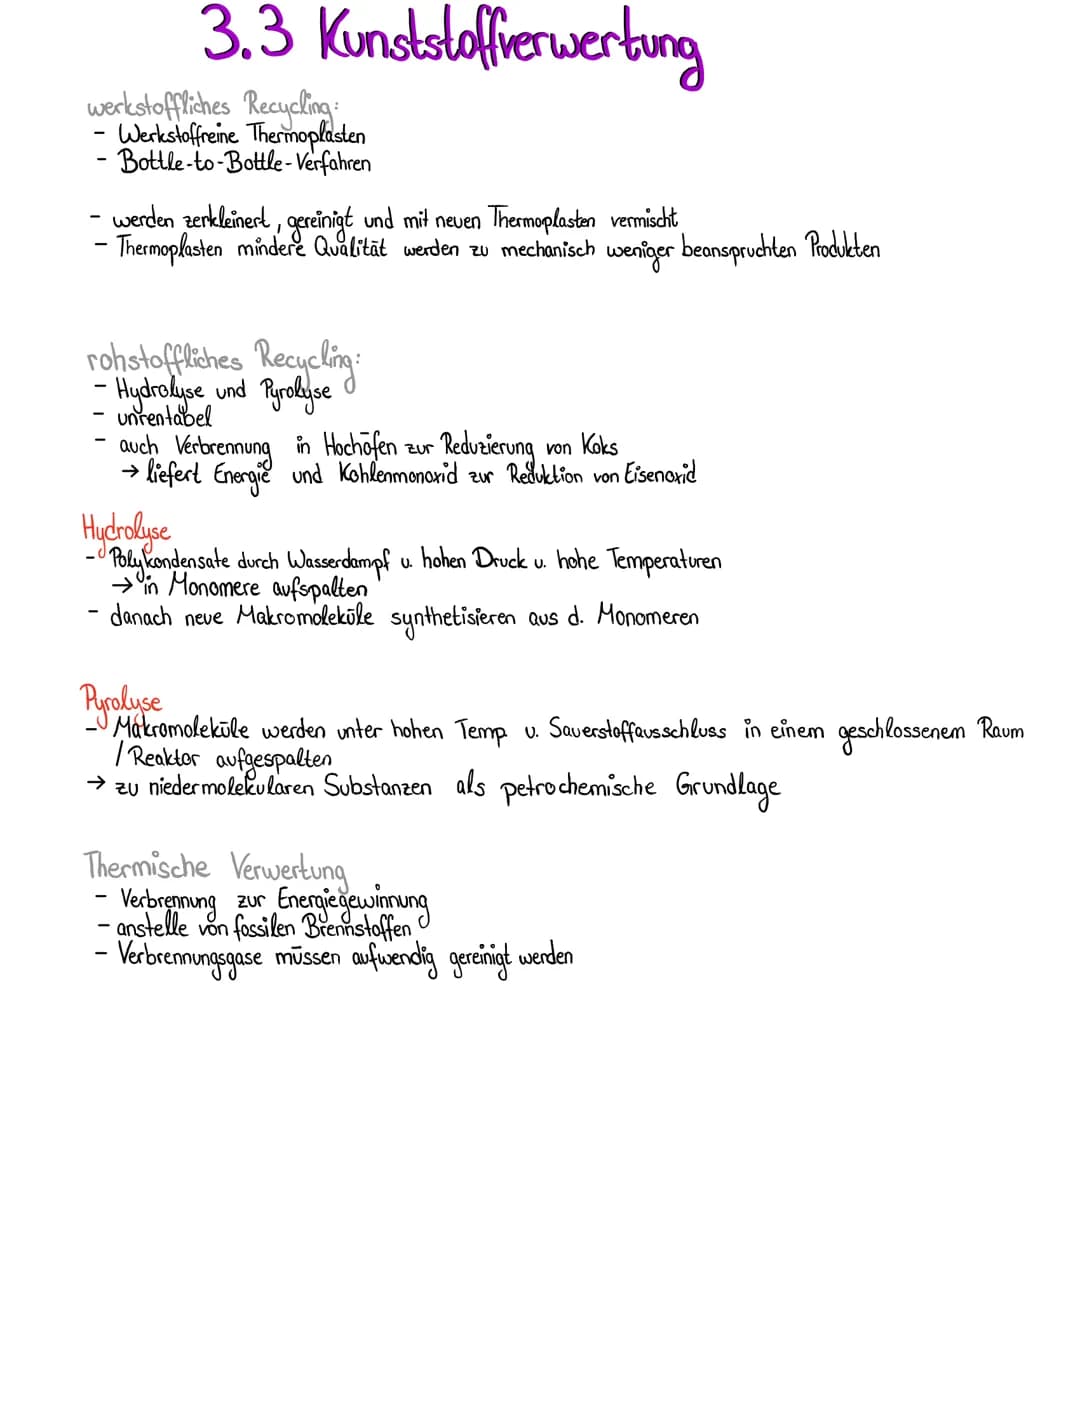 3.3 Kunststoffverwertung
werkstoffliches Recycling:
- Werkstoffreine Thermoplasten
- Bottle-to-Bottle-Verfahren
- werden zerkleinert, gereinigt und mit neuen Thermoplasten vermischt
- Thermoplasten mindere Qualität werden zu mechanisch weniger beanspruchten Produkten
rohstoffliches Recycling:
- Hydrolyse und Pyrolyse
- unrentabel
- auch Verbrennung in Hochöfen zur Reduzierung von Koks
→ liefert Energie und Kohlenmonoxid zur Reduktion von Eisenoxid
Hydrolyse
- Polykondensate durch Wasserdampf u. hohen Druck u. hohe Temperaturen
→ in Monomere aufspalten
- danach neue Makromoleküle synthetisieren aus d. Monomeren
Pyrolyse
- Makromoleküle werden unter hohen Temp. u. Sauerstoffausschluss in einem geschlossenem Raum
/ Reaktor aufgespalten
→ zu niedermolekularen Substanzen als petrochemische Grundlage
Thermische Verwertung
- Verbrennung zur Energiegewinnung
- anstelle von fossilen Brennstoffen
- Verbrennungsgase müssen aufwendig gereinigt werden